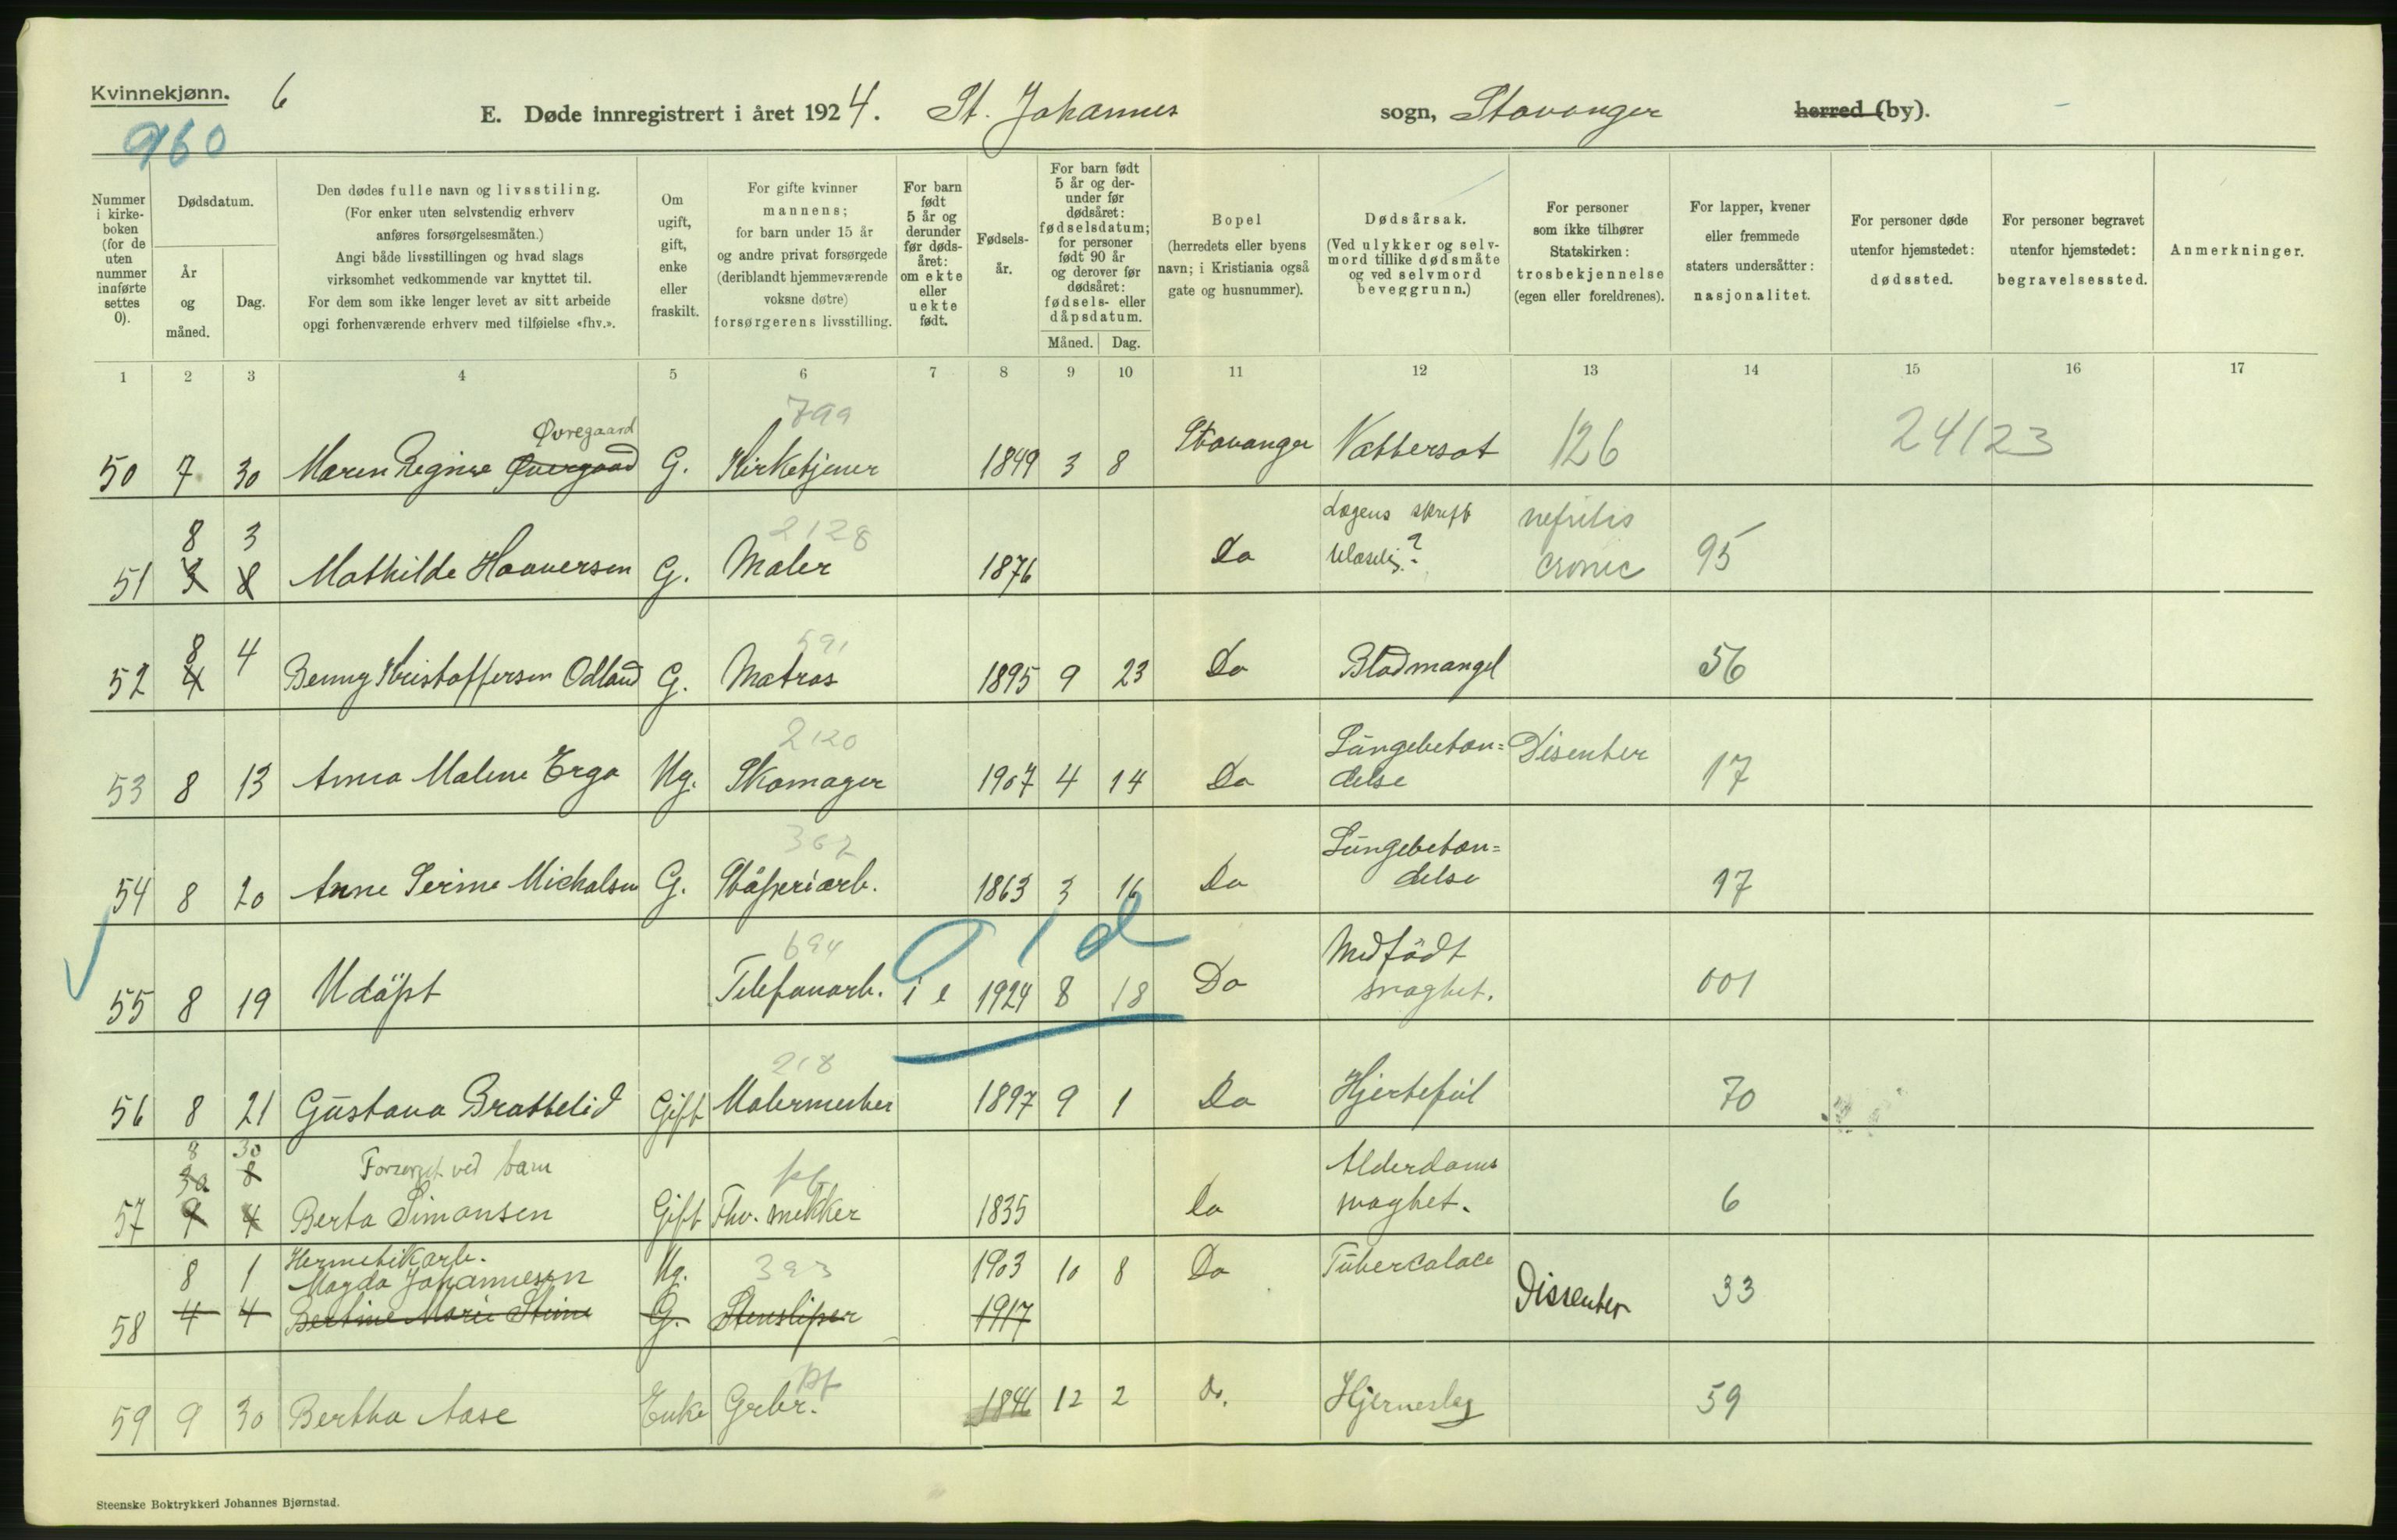 Kvinnekjønn. 6
960
E. Døde innregistrert i året 1924. St. Johannes sogn, Stavanger herred (by).
Nummer i kirkeboken (for de uten nummer innførte settes 0).
Dødsdatum.
År og måned.
Dag.
Den dødes fulle navn og livsstiling. (For enker uten selvstendig erhverv anføres forsørgelsesmåten.) Angi både livsstillingen og hvad slags virksomhet vedkommende var knyttet til. For dem som ikke lenger levet av sitt arbeide opgi forhenværende erhverv med tilføielse «fhv.».
Om ugift, gift, enke eller fraskilt.
For gifte kvinner mannens; for barn under 15 år og andre privat forsørgede (deriblandt hjemmeværende voksne døtre) forsørgerens livsstilling.
For barn født 5 år og derunder før dødsåret: om ekte eller uekte født.
Fødselsår.
For barn født 5 år og derunder før dødsåret: fødselsdatum; for personer født 90 år og derover før dødsåret: fødsels- eller dåpsdatum.
Måned. Dag.
Bopel (herredets eller byens navn; i Kristiania også gate og husnummer).
Dødsårsak. (Ved ulykker og selvmord tillike dødsmåte og ved selvmord beveggrunn.)
For personer som ikke tilhører Statskirken: trosbekjennelse (egen eller foreldrenes).
For lapper, kvener eller fremmede staters undersåtter: nasjonalitet.
For personer døde utenfor hjemstedet: dødssted.
For personer begravet utenfor hjemstedet: begravelsessted.
Anmerkninger.
1 2 3 4 5 6 7 8 9 10 11 12 13 14 15 16 17
Øvregaard 799
50 7 30 Maren Regine Øvergaard G. Kirketjener 1849 3 8 Stavanger Vattersot 126 24/23
8 3 2128 Lægens skrift nefritis
51 3 8 Mathilde Haaversen G. Maler 1876 Do ulæselig? cronic 95
8 4 591
52 4 Benny Kristoffersen Odland G. Matros 1895 9 23 Do Blodmangel 56
2120 Lungebeten= Disenter
53 8 13 Anna Malene Erga Ug. Skomager 1907 4 14 Do delse 17
362 Lungebeten=
54 8 20 Anne Serine Michalsen G. Støperiarb. 1863 3 16 Do delse 17
694 0 1 d Medfødt
55 8 19 Udøpt Telefonarb. i e 1924 8 18 Do svaghet. 001
218
56 8 21 Gustava Brattelid Gift Malermester 1897 9 1 Do Hjertefeil 70
8 30
30 8 Forsørget ved barn pf Alderdoms
57 9 4 Berta Simonsen Gift Fhv. snekker 1835 Do svaghet. 6
Hermetikarb.
8 1 Magda Johannesen Ug. 393 1903 10 8 Do Tuberculose
58 4 4 Bertine Marie Steine G. Stensliper 1917 Dissenter 33
pf
59 9 30 Bertha Aase Enke Grbr. 1846 12 2 do. Hjerneslag 59
Steenske Boktrykkeri Johannes Bjørnstad.